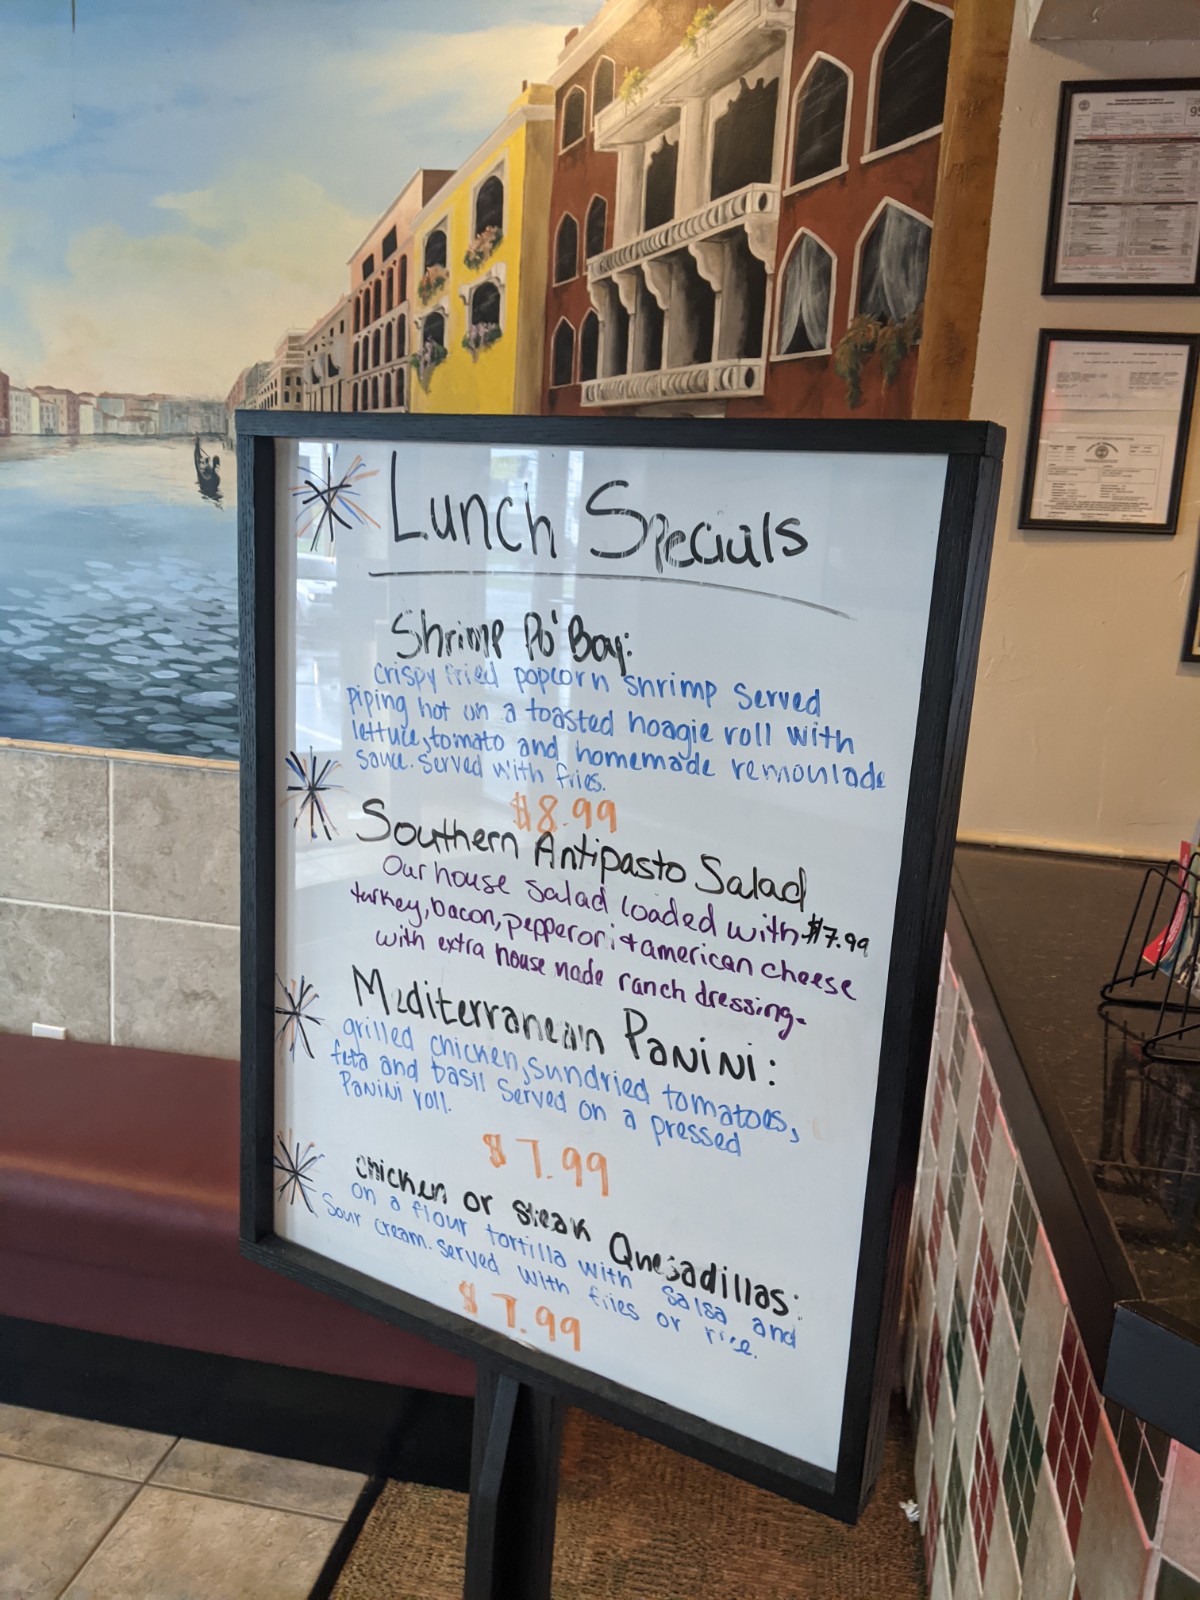 Lunch Specials
Shrimp Po' Boy:
crispy fried popcorn shrimp served
piping hot on a toasted hoagie roll with
lettuce, tomato and homemade remoulade
sauce. Served with fries.
$8.99
Southern Antipasto Salad
Our house salad loaded with $7.99
turkey, bacon, pepperoni & american cheese
with extra house made ranch dressing.
Mediterranean Panini:
grilled chicken, sundried tomatoes,
feta and basil served on a pressed
Panini roll.
$7.99
chicken or steak Quesadillas:
on a flour tortilla with salsa and
sour cream. Served with fries or rice.
$7.99